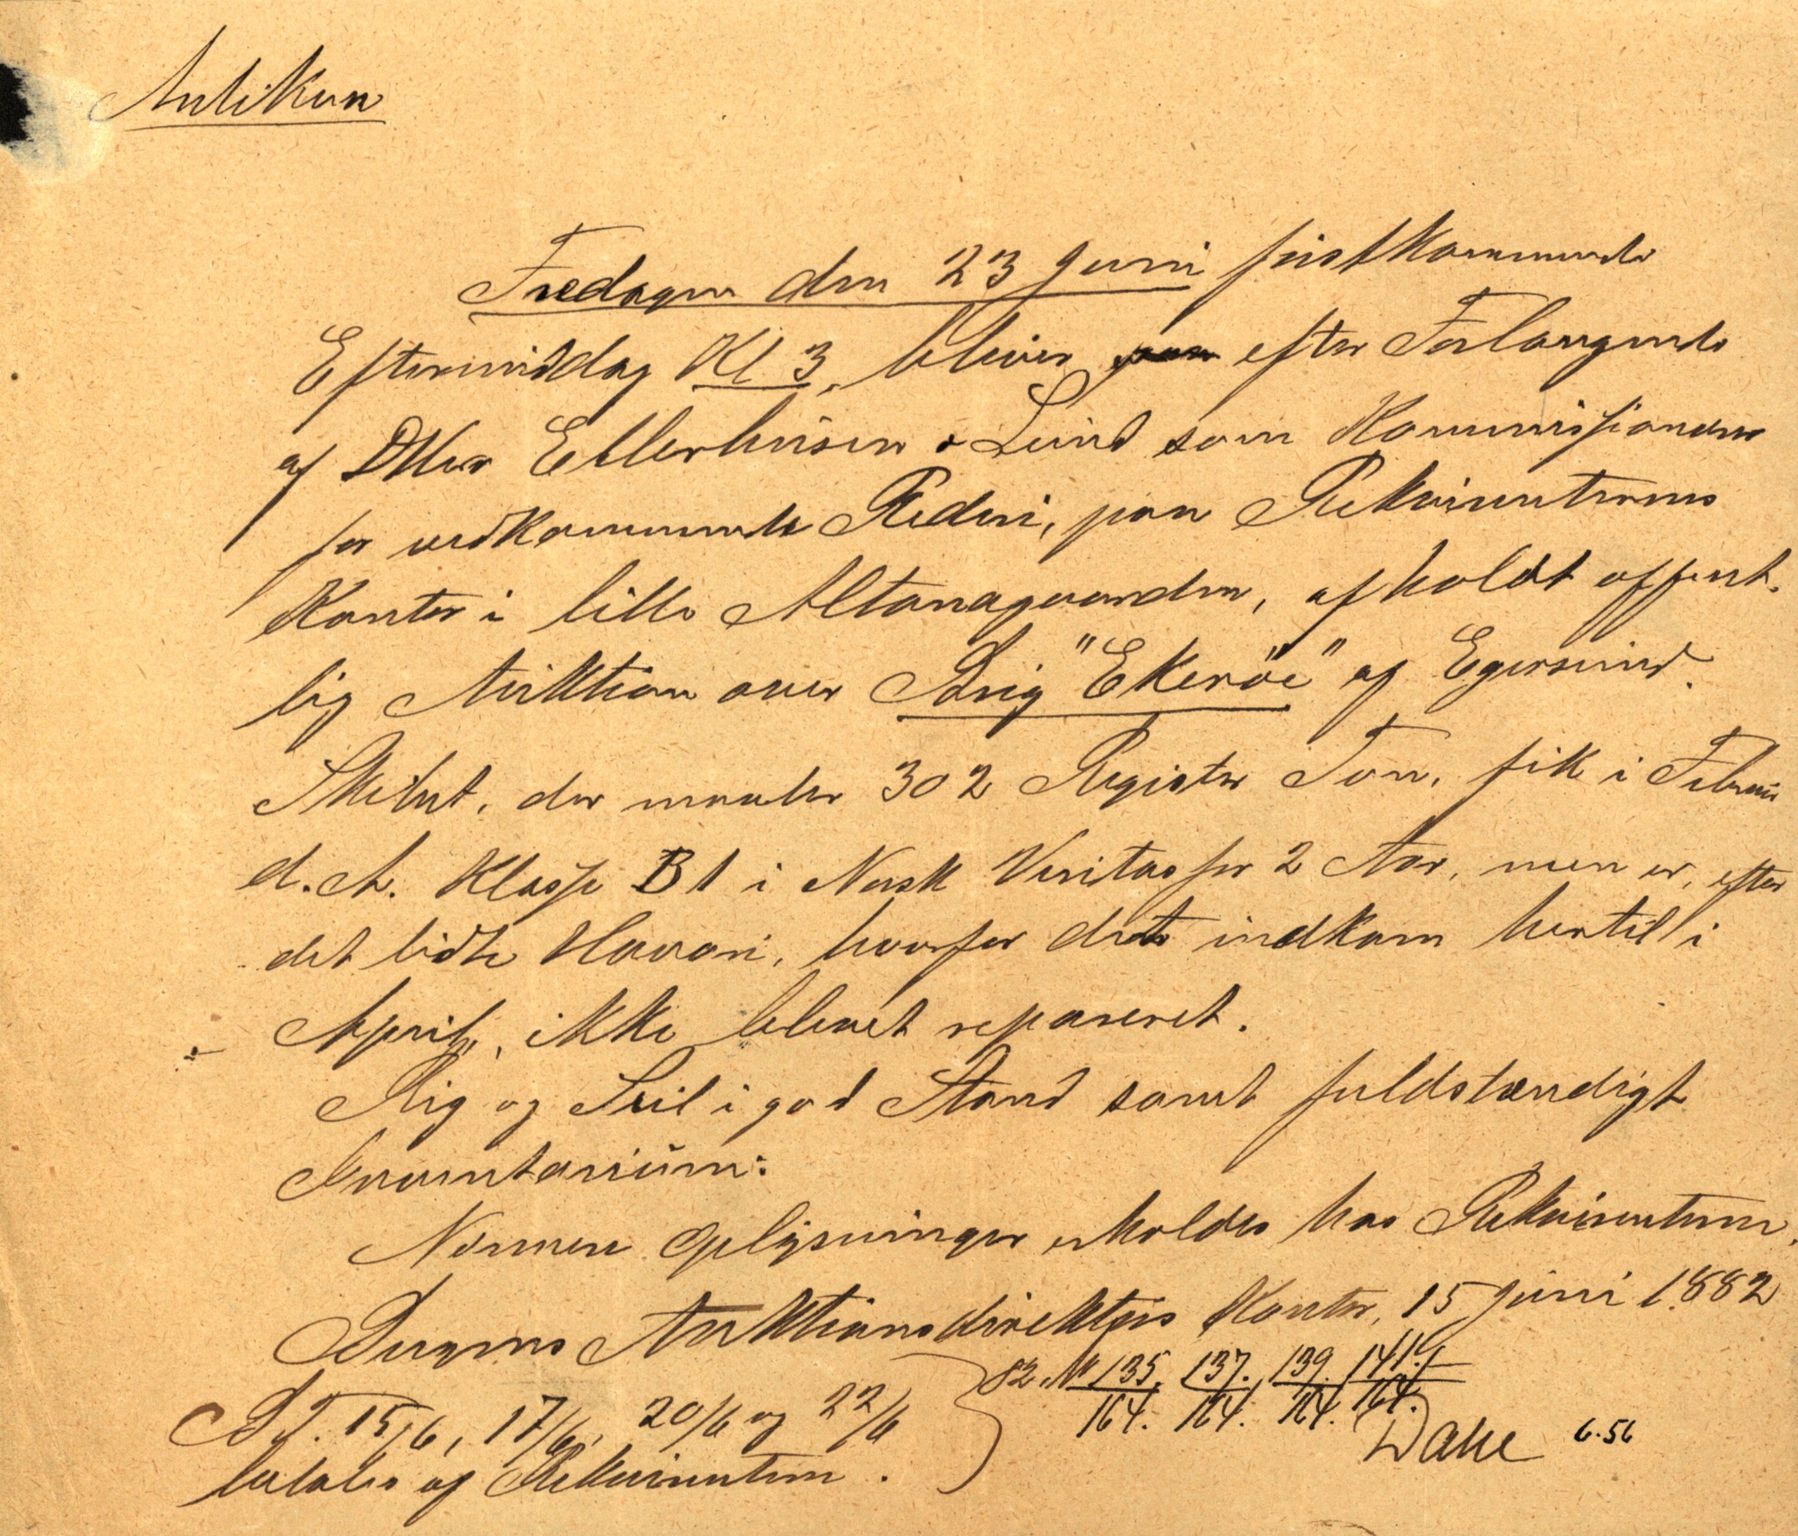 Auktion
Fredagen den 23 Juni førstkommende
Eftermiddag Kl 3, bliver efter Forlangende
af DHrr Ellerhusen & Lund som Kommissionærer
for vedkommende Rederi, paa Rekvirenternes
Kontor i lille Altonagaarden, afholdt offent-
lig Auktion over Brig "Ekerøe" af Egersund.
Skibet, der maaler 302 Register Ton, fik i Februar
d. A. Klasse B1 i Norsk Veritas for 2 Aar, men er, efter
det lidte Havari, hvorfor det indkom hertil i
April, ikke blevet repareret.
Rig og Seil i god Stand samt fuldstændigt
Inventarium.
Nærmere Oplysninger erholdes hos Rekvirenterne.
Bergens Auktionsdirektørs Kontor, 15 Juni 1882
B. T. 15/6, 17/6, 20/6 og 22/6
betales af Rekvirenterne.
82. № 135. 137. 139. 141.
164. 164. 164. 164.
6.56